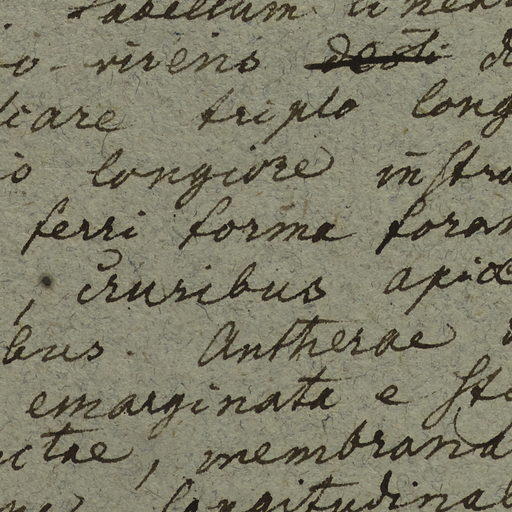 labellum linea
o-virens
licare triplo long
io longiore instru
ferri forma foran
, cruribus apice
bus. Antherae
emarginata e sti
ctae, membrana
longitudinal